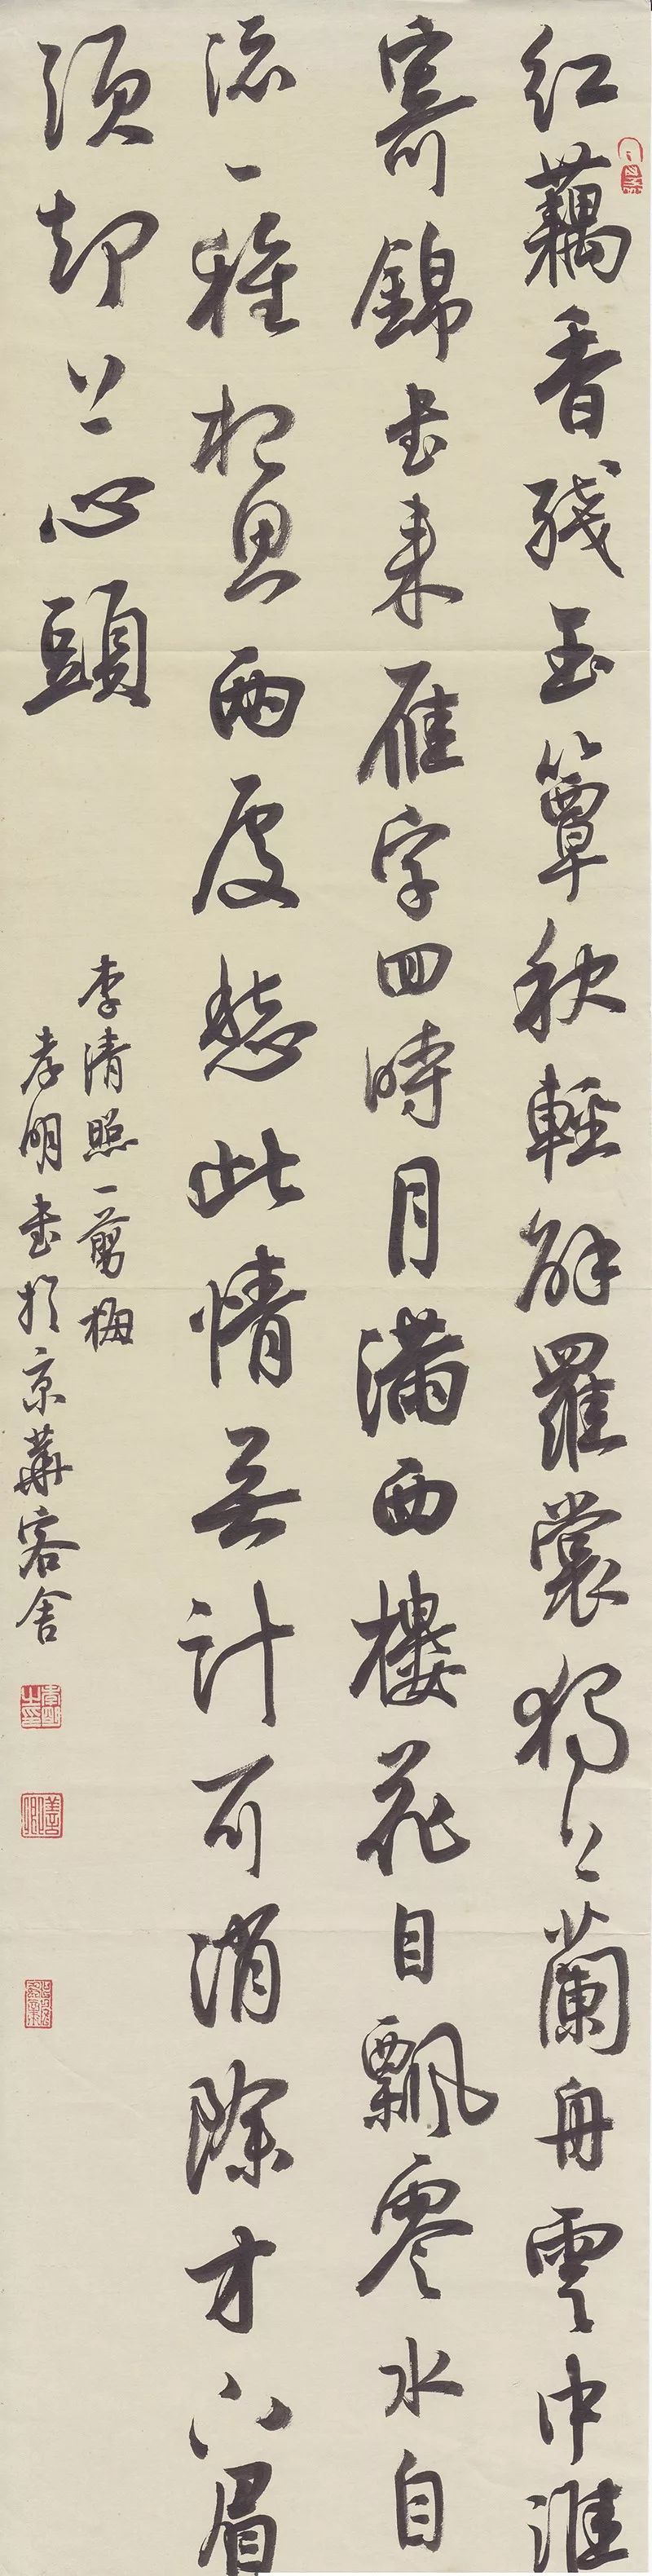 紅藕香殘玉簟秋輕解羅裳獨上蘭舟雲中誰
寄錦書來雁字回時月滿西樓花自飄零水自
流一種相思兩處愁此情無計可消除才下眉
頭却上心頭
李清照一剪梅
孝明書於京華客舍